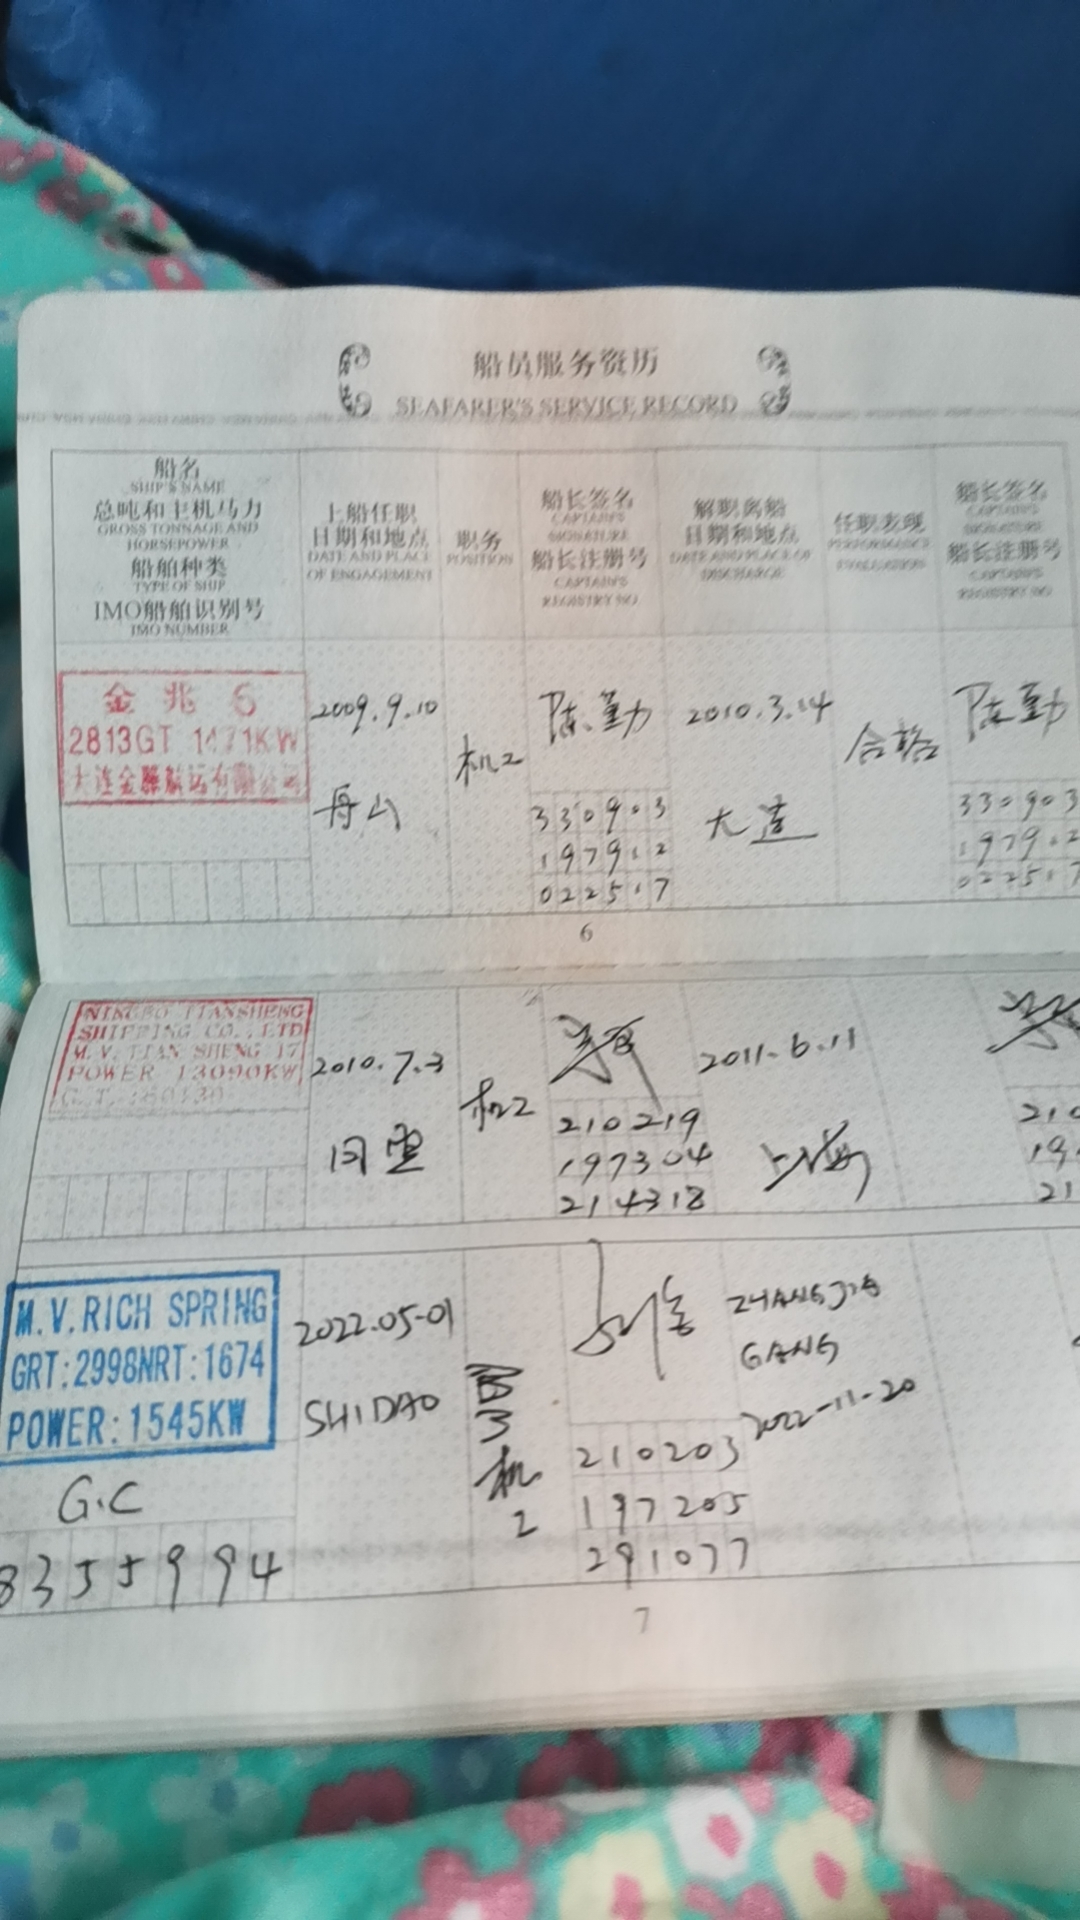 船员服务资历
SEAFARER'S SERVICE RECORD
船名
SHIP'S NAME
总吨和主机马力
GROSS TONNAGE AND
HORSEPOWER
船舶种类
TYPE OF SHIP
IMO船舶识别号
IMO NUMBER
上船任职
日期和地点
DATE AND PLACE
OF ENGAGEMENT
职务
POSITION
船长签名
CAPTAIN'S
SIGNATURE
船长注册号
CAPTAIN'S
REGISTRY NO
解职离船
日期和地点
DATE AND PLACE OF
DISCHARGE
任职表现
PERFORMANCE
EVALUATION
船长签名
CAPTAIN'S
SIGNATURE
船长注册号
CAPTAIN'S
REGISTRY NO
金兆6
2813GT 1471KW
大连金 航运有限公司
2009.9.10
舟山
机工
陈勤
330903
197912
022517
2010.3.14
大连
合格
陈勤
330903
197912
022517
6
NINGBO TIANSHENG
SHIPPING CO.,LTD
M.V. TIAN SHENG 17
POWER 13090KW
2010.7.3
机工
210219
197304
214318
2011.6.11
上海
210
19
21
M.V.RICH SPRING
GRT:2998NRT:1674
POWER:1545KW
G.C
8355994
2022.05-01
SHIDAO
机
工
210203
197205
291077
ZHANGJIA
GANG
2022-11-20
7